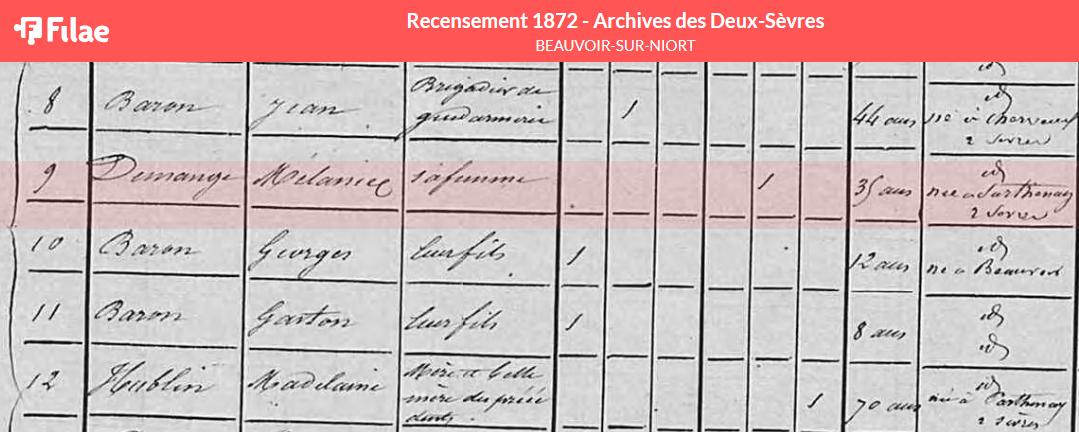 Filae
Recensement 1872 - Archives des Deux-Sèvres
BEAUVOIR-SUR-NIORT
id
8 Baron Jean Brigadier de gendarmerie 1 44 ans id né à Cherveux 2 Sèvres
9 Demange Mélanie sa femme 1 35 ans id née à Parthenay 2 Sèvres
10 Baron Georges leur fils 1 12 ans id né à Beauvoir
11 Baron Gaston leur fils 1 8 ans id id
12 Hublin Madelaine Mère et belle mère des précédents 1 70 ans id née à Parthenay 2 Sèvres